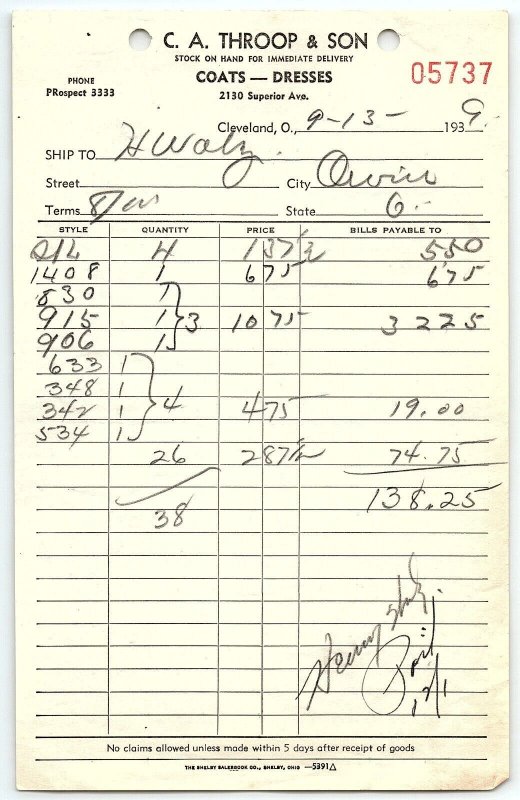 C. A. THROOP & SON
STOCK ON HAND FOR IMMEDIATE DELIVERY
COATS — DRESSES
PHONE
PRospect 3333
2130 Superior Ave.
05737
Cleveland, O., 9-13- 1939
SHIP TO H Waltz
Street City
Terms State O.
STYLE QUANTITY PRICE BILLS PAYABLE TO
4 137½ 550
1408 1 675 675
830 1
915 1 } 3 1075 3225
906 1
633 1
348 1
342 1 } 4 475 19.00
534 1
26 287½ 74.75
38 138.25
Henry
Paid
12/1
No claims allowed unless made within 5 days after receipt of goods
THE SHELBY SALESBOOK CO., SHELBY, OHIO —5391△